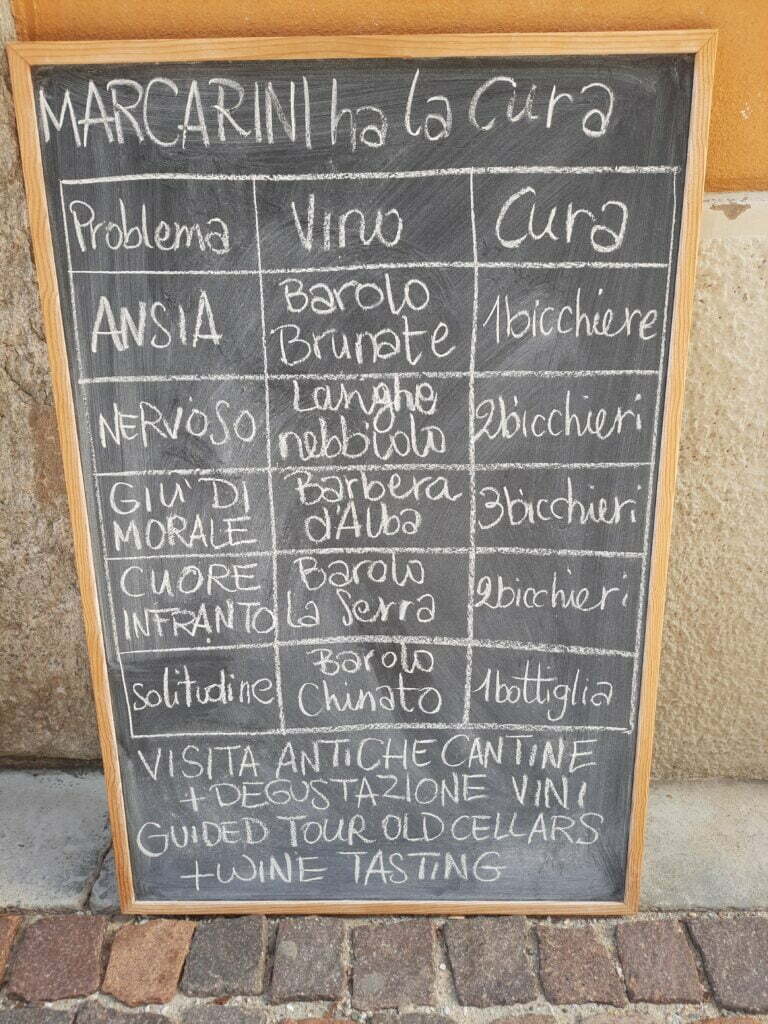 MARCARINI ha la Cura
Problema Vino Cura
ANSIA Barolo Brunate 1 bicchiere
NERVOSO Langhe nebbiolo 2 bicchieri
GIU' DI MORALE Barbera d'Alba 3 bicchieri
CUORE INFRANTO Barolo La Serra 2 bicchieri
Solitudine Barolo Chinato 1 bottiglia
VISITA ANTICHE CANTINE
+ DEGUSTAZIONE VINI
GUIDED TOUR OLD CELLARS
+ WINE TASTING